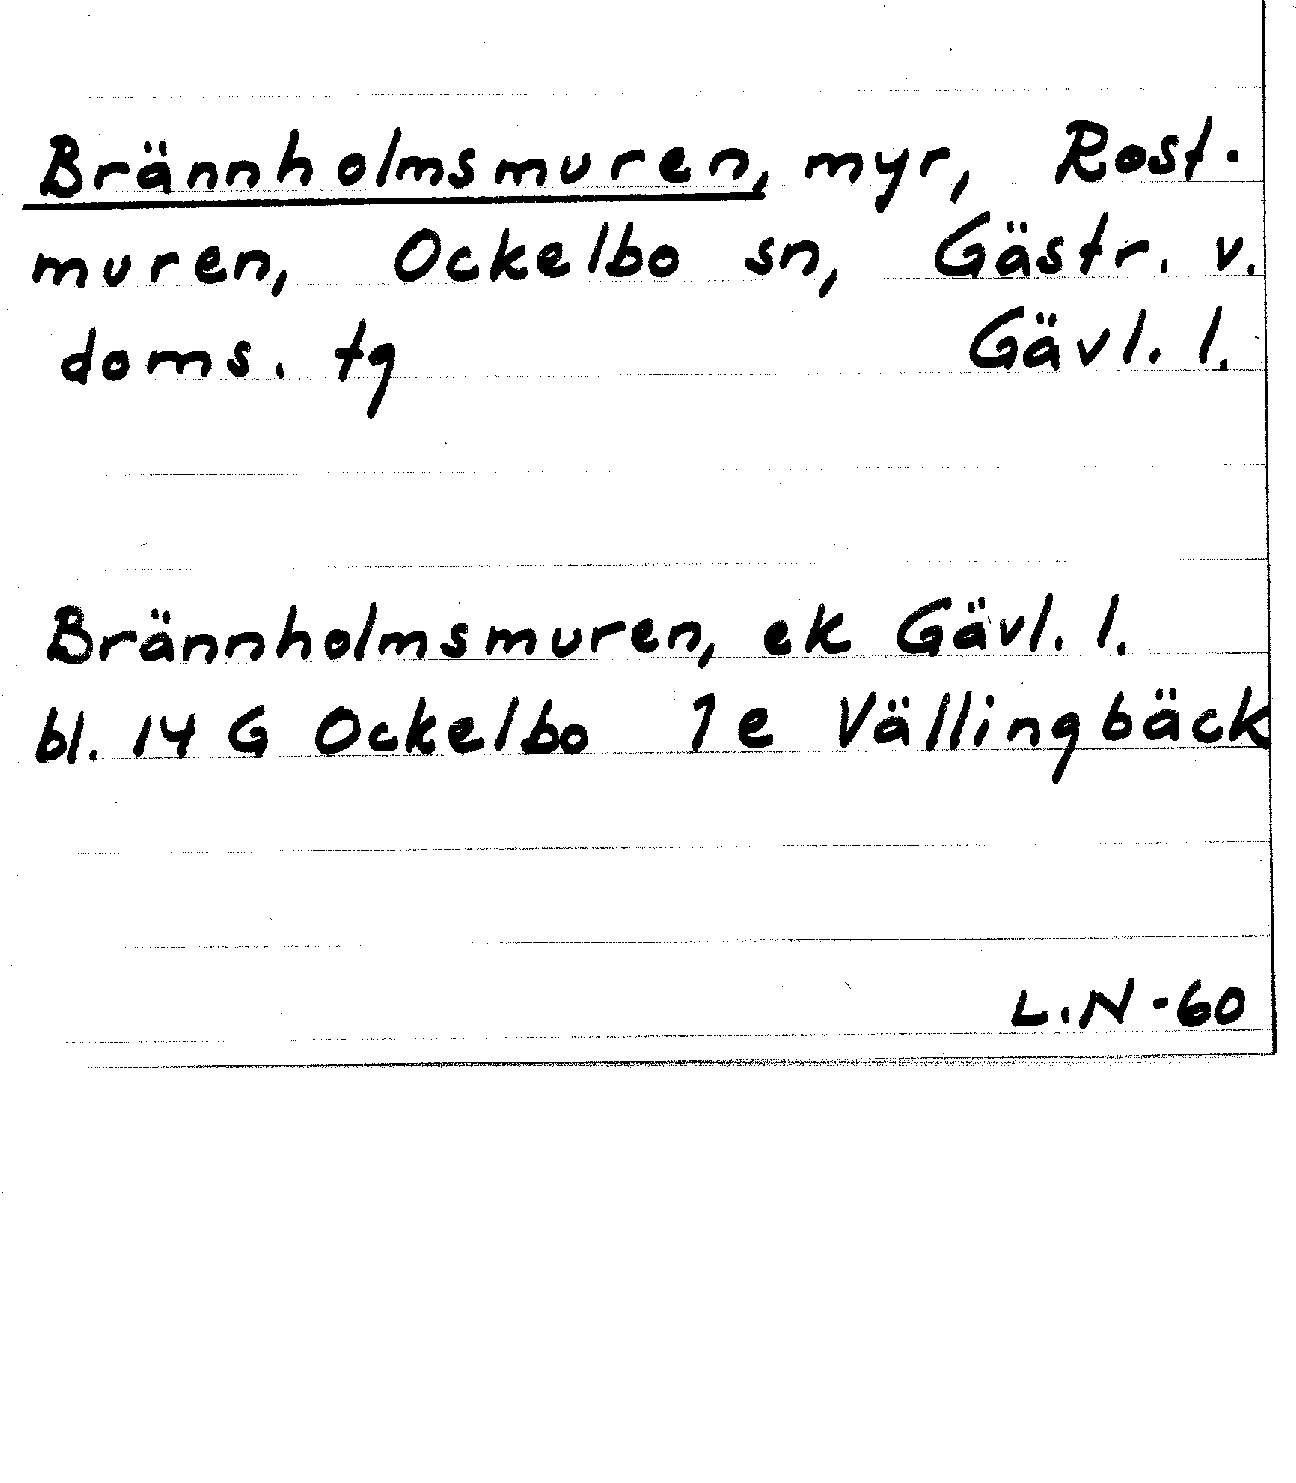 Brännholmsmuren, myr, Rost-
muren, Ockelbo sn, Gästr. v.
doms. tg Gävl. l.
Brännholmsmuren, ek Gävl. l.
bl. 14 G Ockelbo 1e Vällingbäck
L.N -60